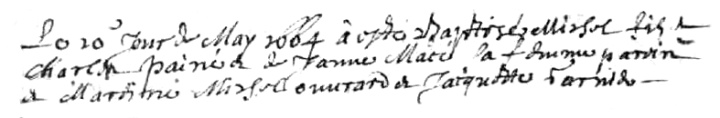 Le 10e Jour de May 1664 a este Baptisé Michel filz de
Charles Painé & de Janne Macé sa femme parrin
& Marrine Michel ouvrard & Jacquette